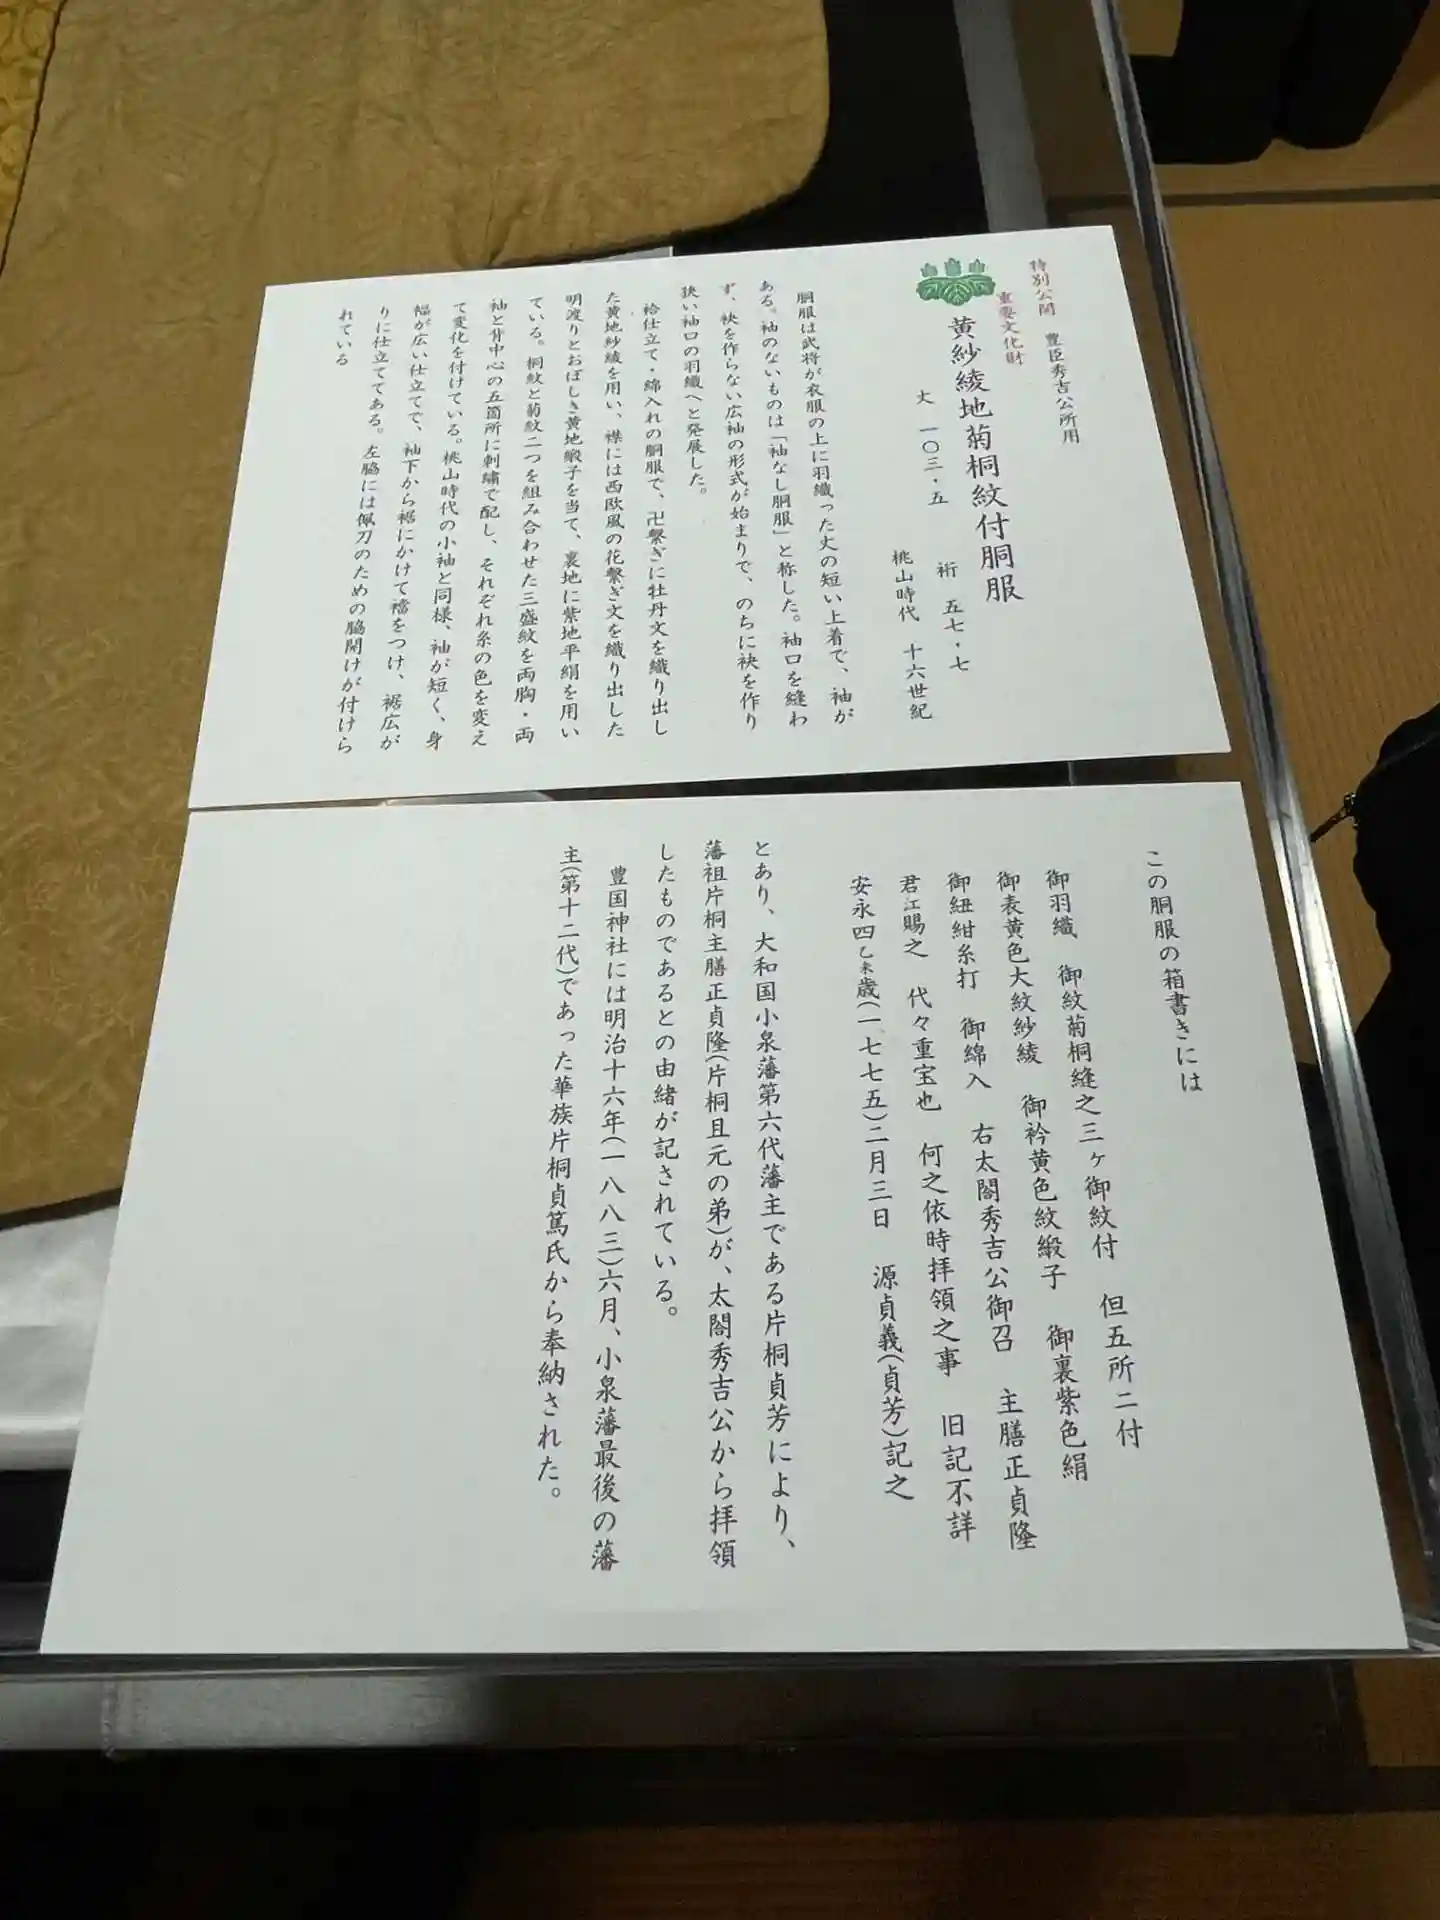 特別公開　豊臣秀吉公所用
重要文化財
黄紗綾地菊桐紋付胴服
丈　一〇三・五　　裄　五七・七
桃山時代　十六世紀
胴服は武将が衣服の上に羽織った丈の短い上着で、袖が
ある。袖のないものは「袖なし胴服」と称した。袖口を縫わ
ず、袂を作らない広袖の形式が始まりで、のちに袂を作り
狭い袖口の羽織へと発展した。
袷仕立て・綿入れの胴服で、卍繋ぎに牡丹文を織り出し
た黄地紗綾を用い、襟には西欧風の花繋ぎ文を織り出した
明渡りとおぼしき黄地緞子を当て、裏地に紫地平絹を用い
ている。桐紋と菊紋二つを組み合わせた三盛紋を両胸・両
袖と背中心の五箇所に刺繍で配し、それぞれ糸の色を変え
て変化を付けている。桃山時代の小袖と同様、袖が短く、身
幅が広い仕立てで、袖下から裾にかけて襠をつけ、裾広が
りに仕立ててある。左脇には佩刀のための脇開けが付けら
れている
この胴服の箱書きには
御羽織　御紋菊桐縫之三ヶ御紋付　但五所ニ付
御表黄色大紋紗綾　御衿黄色紋緞子　御裏紫色絹
御紐紺糸打　御綿入　右太閤秀吉公御召　主膳正貞隆
君江賜之　代々重宝也　何之依時拝領之事　旧記不詳
安永四乙未歳（一七七五）二月三日　源貞義（貞芳）記之
とあり、大和国小泉藩第六代藩主である片桐貞芳により、
藩祖片桐主膳正貞隆（片桐且元の弟）が、太閤秀吉公から拝領
したものであるとの由緒が記されている。
豊国神社には明治十六年（一八八三）六月、小泉藩最後の藩
主（第十二代）であった華族片桐貞篤氏から奉納された。